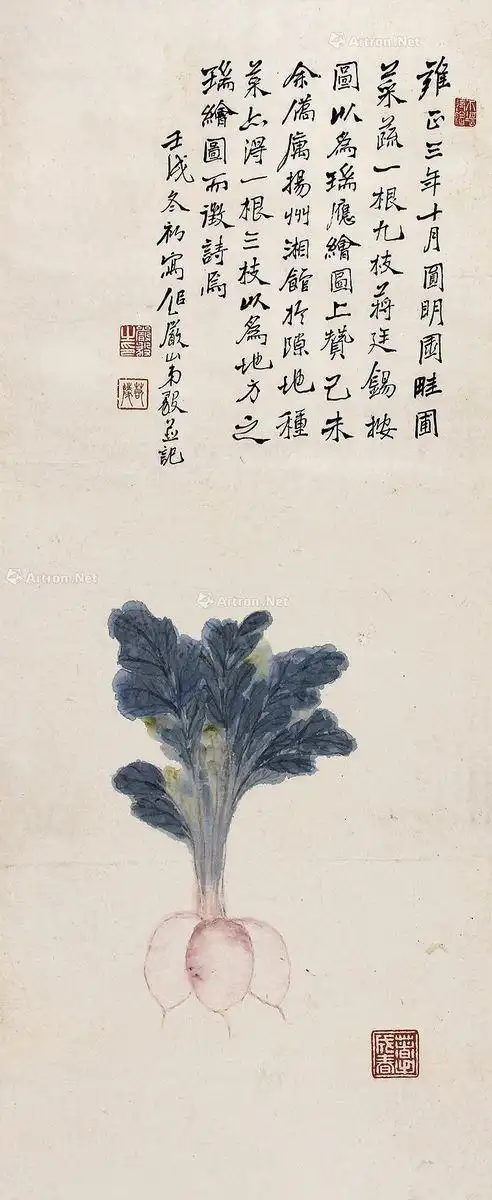 雍正三年十月圓明園畦圃
菜蔬一根九枝蔣廷錫按
圖以為瑞應繪圖上贊己未
余僑寓揚州湘館於隙地種
菜亦得一根三枝以為地方之
瑞繪圖而徵詩焉
壬戌冬初寫嚴山毅並記
Artron.Net
Artron.Net
Artron.Net